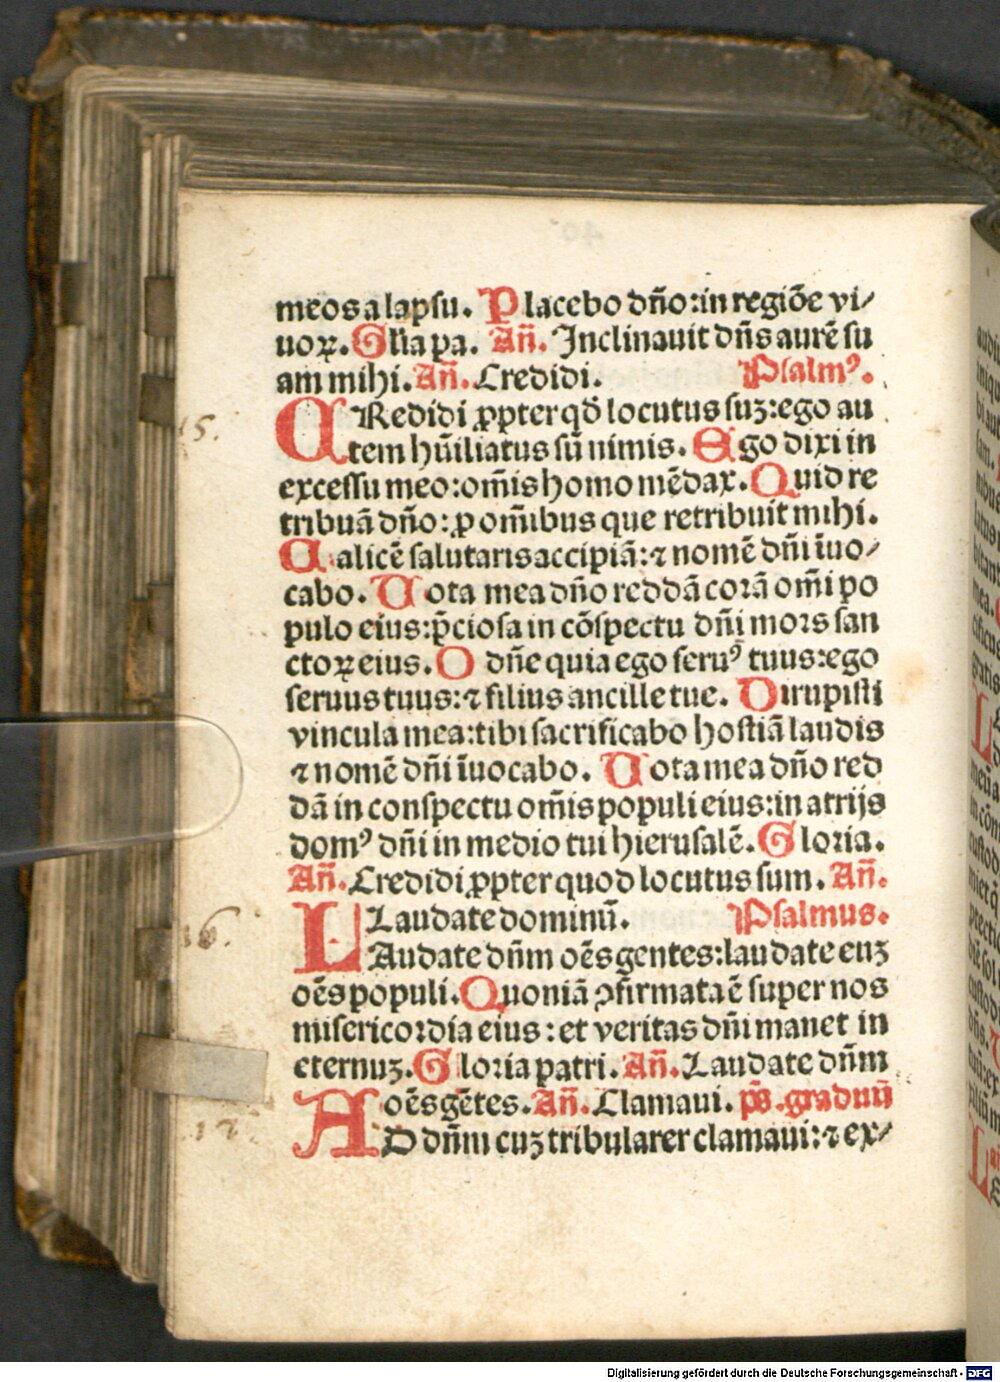 meos a lapsu. Placebo dño: in regiõe vi/
uoꝝ. Gl̃ia pa. Añ. Inclinauit dñs aurẽ su
am mihi. Añ. Credidi. Psalmꝰ.
CRedidi ꝓpter qđ locutus suꝫ: ego au
tem hũiliatus sũ nimis. Ego dixi in
excessu meo: om̃is homo mẽdax. Quid re
tribuã dño: ꝓ om̃ibus que retribuit mihi.
Calicẽ salutaris accipiã: ⁊ nomẽ dñi ĩuo/
cabo. Vota mea dño reddã corã om̃i po
pulo eius: p̃ciosa in cõspectu dñi mors san
ctoꝝ eius. O dñe quia ego seruꝰ tuus: ego
seruus tuus: ⁊ filius ancille tue. Dirupisti
vincula mea: tibi sacrificabo hostiã laudis
⁊ nomẽ dñi ĩuocabo. Vota mea dño red
dã in conspectu om̃is populi eius: in atrijs
domꝰ dñi in medio tui hierusalẽ. Gloria.
Añ. Credidi ꝓpter quod locutus sum. Añ.
Laudate dominũ. Psalmus.
LAudate dñm oẽs gentes: laudate euꝫ
oẽs populi. Quoniã ꝯfirmata ẽ super nos
misericordia eius: et veritas dñi manet in
eternuꝫ. Gloria patri. Añ. Laudate dñm
oẽs gẽtes. Añ. Clamaui. p̃s. graduũ
AD dñm cuꝫ tribularer clamaui: ⁊ ex/
15.
16.
17.
Digitalisierung gefördert durch die Deutsche Forschungsgemeinschaft - DFG